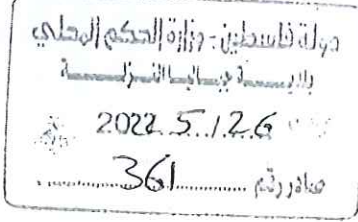 دولة فلسطين - وزارة الحكم المحلي
بلديـــــة جباليا النـزلـــــة
2022.5./26
صادر رقم 361